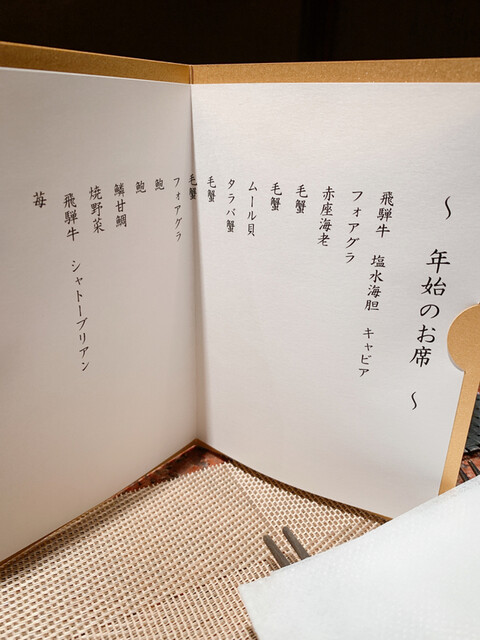 ～ 年始のお席 ～
飛騨牛 塩水海胆 キャビア
フォアグラ
赤座海老
毛蟹
毛蟹
ムール貝
タラバ蟹
毛蟹
毛蟹
フォアグラ
鮑
鮑
鱗甘鯛
焼野菜
飛騨牛 シャトーブリアン
苺